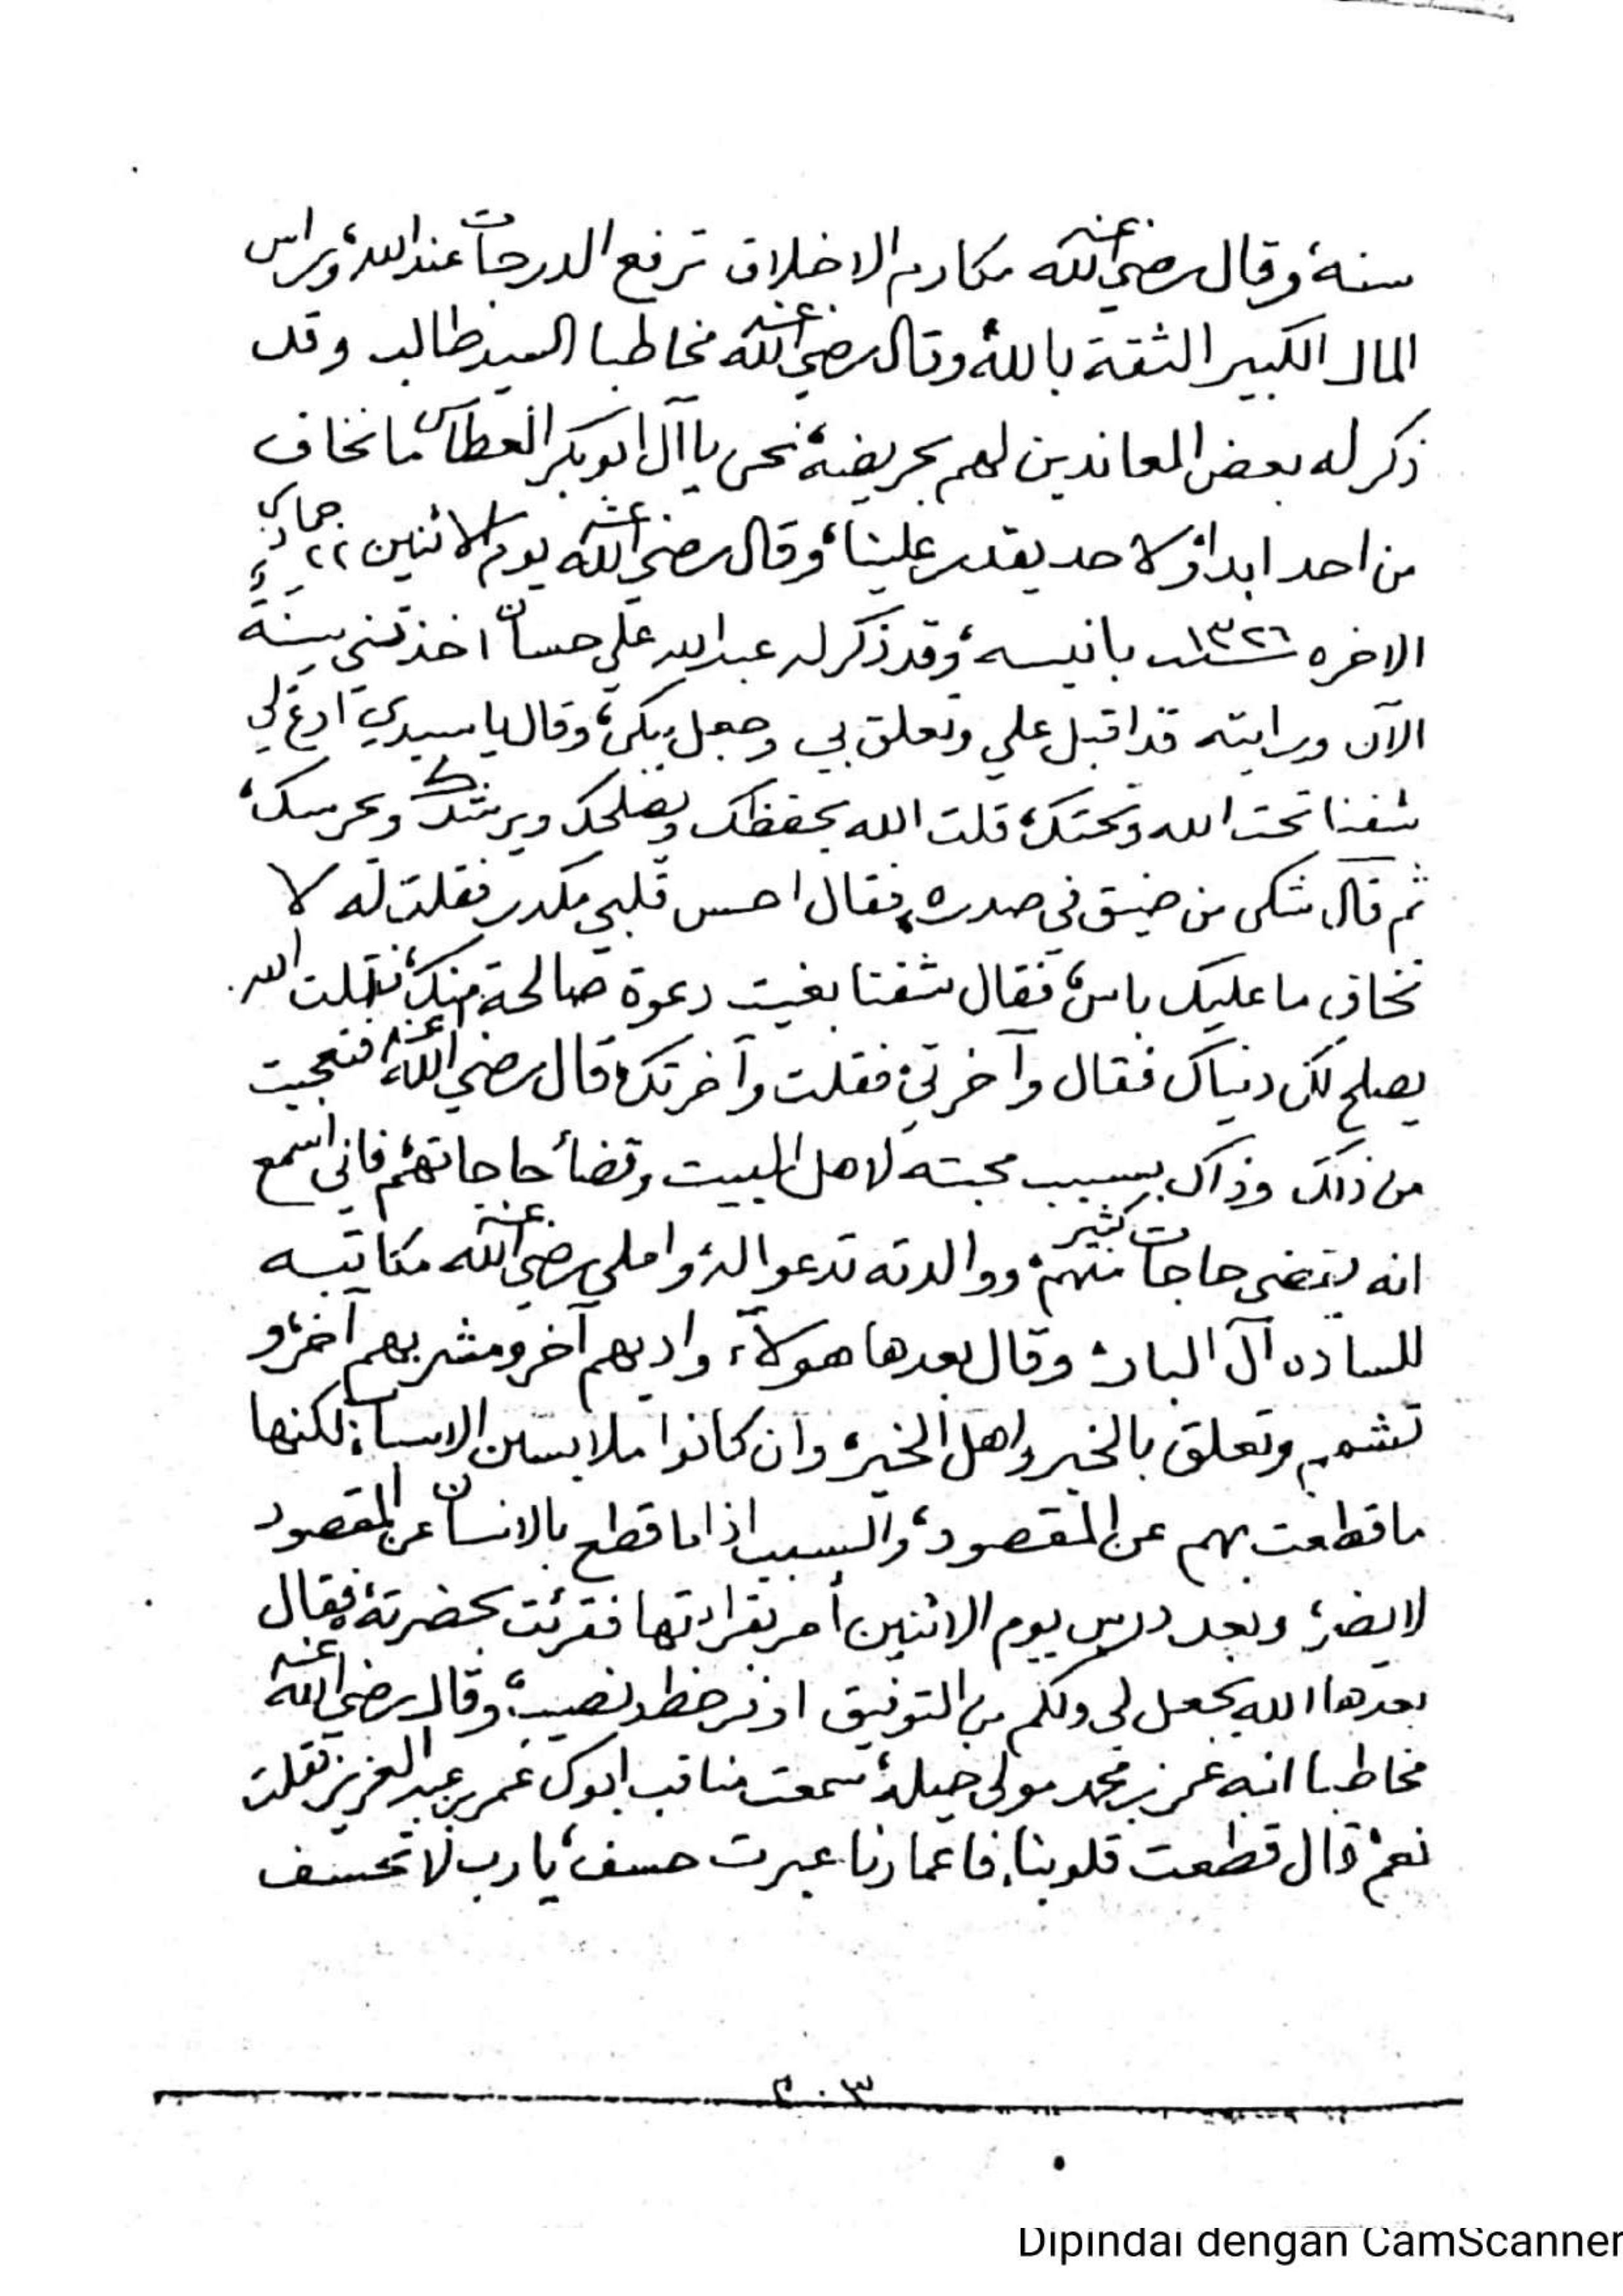 سنة، وقال رضي الله عنه مكارم الاخلاق ترفع الدرجات عند الله، وراس
المال الكبير الثقة بالله، وقال رضي الله عنه مخاطبا السيد طالب وقد
ذكر له بعض المعاندين لهم بحريضة، نحن يا آل ابوبكر العطاس ما نخاف
من احد ابدا، ولا حد يقدر علينا، وقال رضي الله عنه يوم الاثنين ٢٢ جمادى
الاخره سنة ١٣٢٦ بانيسه، وقد ذكر له عبدالله علي حسان اخذتني سنة
الآن ورايته قد اقبل علي وتعلق بي وجعل يبكي، وقال يا سيدي ادع لي
شفنا تحت الله وتحتك، قلت الله يحفظك ويصلحك ويرشدك ويحرسك،
ثم قال شكى من ضيق في صدره، فقال احس قلبي مكدر فقلت له لا
تخاف ما عليك باس، فقال شفنا بغيت دعوة صالحة منك، فقلت الله
يصلح لك دنياك فقال وآخرتي، فقلت وآخرتك، قال رضي الله عنه فتعجبت
من ذلك وذاك بسبب محبته لاهل البيت وقضأ حاجاتهم، فاني اسمع
انه يقضي حاجات كثير منهم، ووالدته تدعوا له، واملى رضي الله عنه مكاتبه
للساده آل البار، وقال بعدها هولآء واديهم آخر ومشربهم آخر، و
تشمير وتعلق بالخير واهل الخير، وان كانوا ملابسين الاسباب، لكنها
ما قطعت بهم عن المقصود، والسبب اذا ما قطع بالانسان عن المقصود
لا يضر، وبعد درس يوم الاثنين أمر بقراءتها فقرئت بحضرته، فقال
بعدها الله يجعل لي ولكم من التوفيق اوفر حظ ونصيب، وقال رضي الله عنه
مخاطبا ابنه عمر بن محمد مولى خيله، سمعت مناقب ابوك عمر بن عبدالعزيز فقلت
نعم، قال قطعت قلوبنا، فاعمارنا عبرت حسف، يا رب لا تحسف
٢٠٣
Dipindai dengan CamScanner